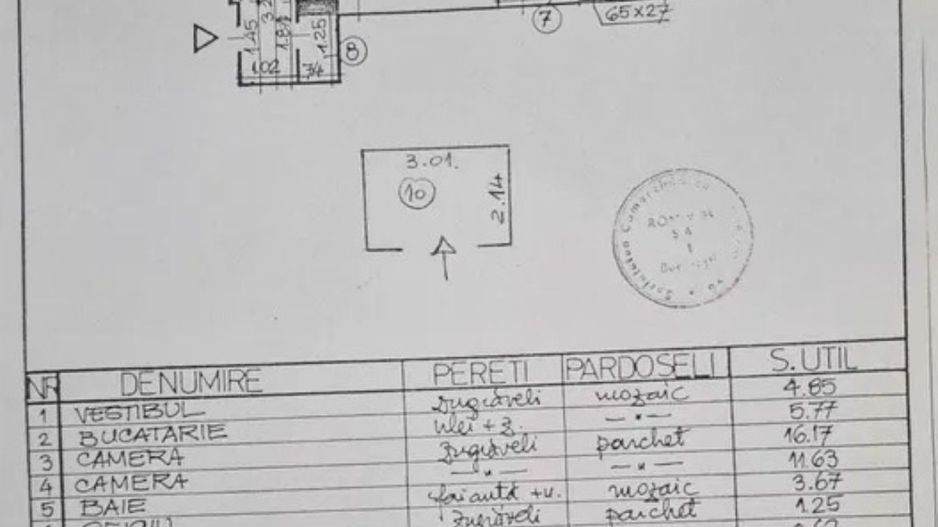 7
65x27
1.45
1.25
8
1.02
74
3.01.
10
2.14
ROMANIA
S.A.
1
Bucureşti
NR DENUMIRE PERETI PARDOSELI S. UTIL
1 VESTIBUL zugrăveli mozaic 4.85
2 BUCATARIE ulei + z. — " — 5.77
3 CAMERA zugrăveli parchet 16.17
4 CAMERA — " — — " — 11.63
5 BAIE faianta + u. mozaic 3.67
zugrăveli parchet 1.25